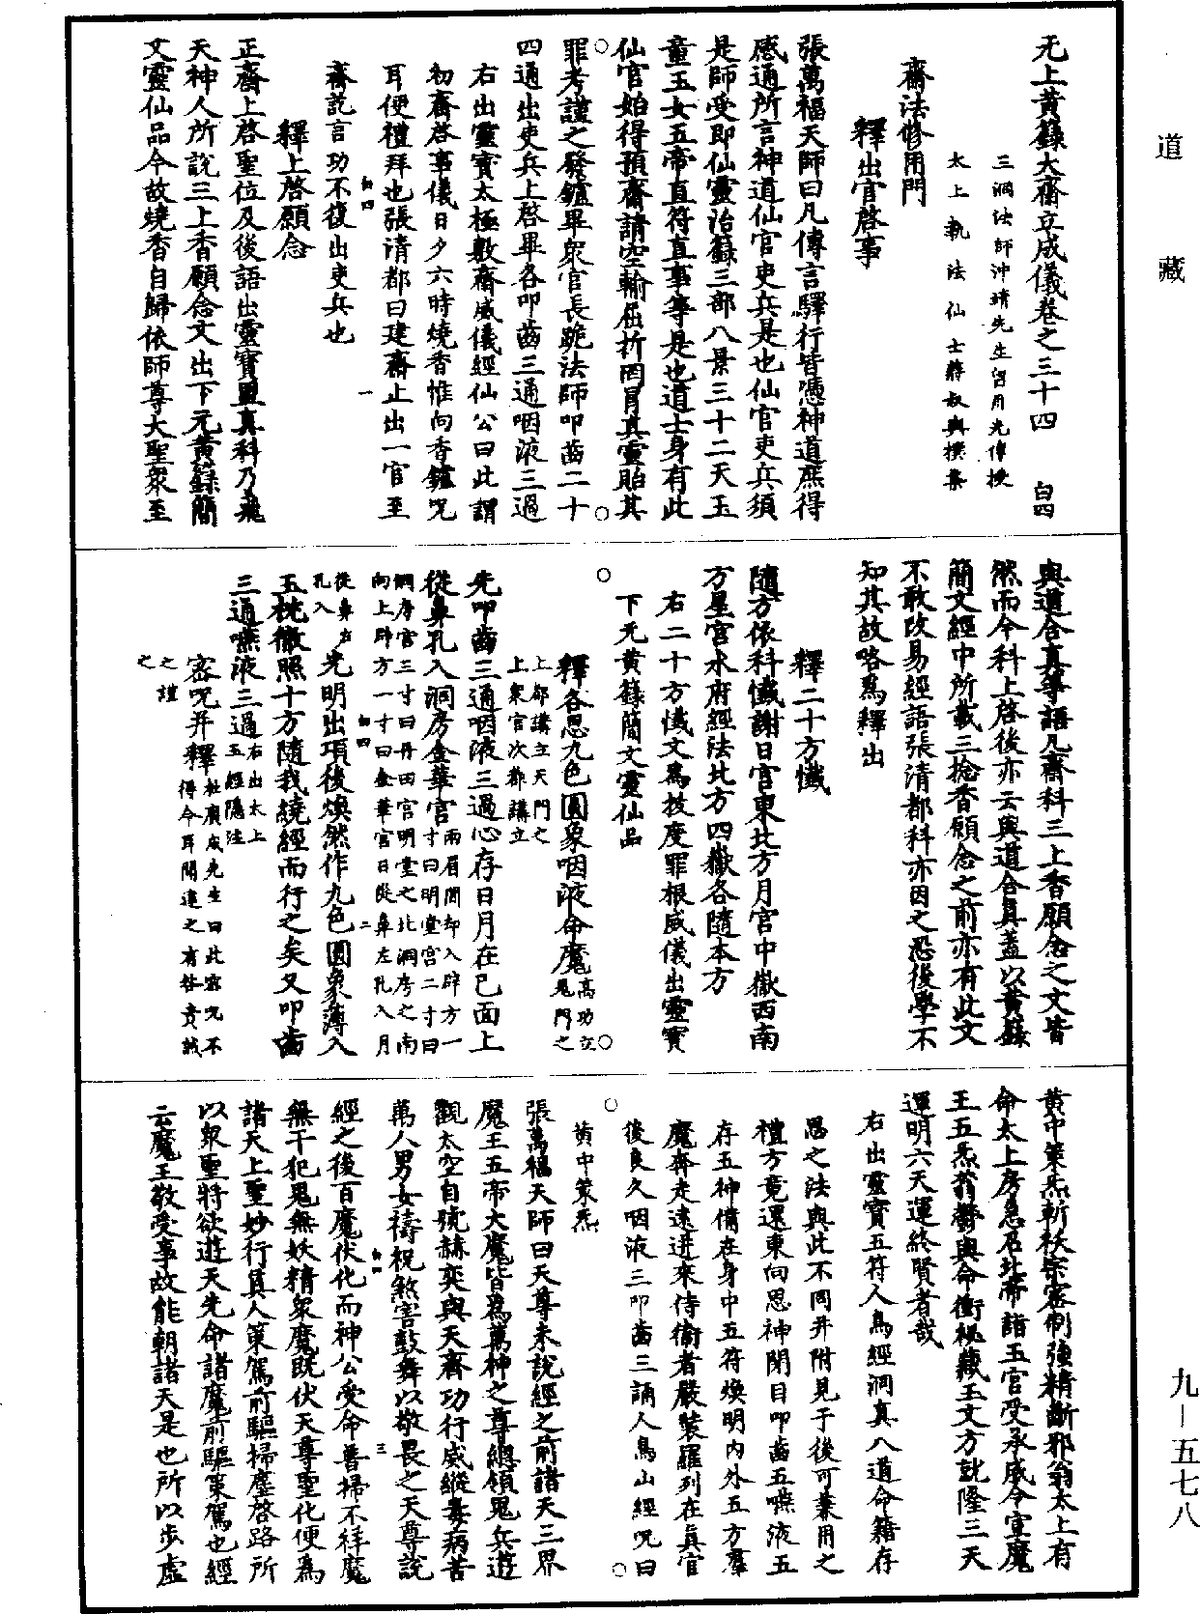 道藏
无上黃籙大齋立成儀卷之三十四 白四
三洞法師沖靖先生留用光傳授
太上執法仙士蔣叔輿撰集
齋法修用門
釋出官啓事
張萬福天師曰凡傳言驛行皆憑神道庶得
感通所言神道仙官吏兵是也仙官吏兵須
是師受即仙靈治籙三部八景三十二天玉
童玉女五帝直符直事等是也道士身有此
仙官始得預齋請空輪屈折罔冐真靈貽其
罪考謹之發鑪畢衆官長跪法師叩齒二十
四通出吏兵上啓畢各叩齒三通咽液三過
右出靈寶太極敷齋威儀經仙公曰此謂
初齋啓事儀日夕六時燒香惟向香鑪呪
耳便禮拜也張清都曰建齋止出一官至
白四 一
齋說言功不復出吏兵也
釋上啓願念
正齋上啓聖位及後語出靈寶盟真科乃飛
天神人所說三上香願念文出下元黃籙簡
文靈仙品今故燒香自歸依師尊大聖衆至
與道合真等語凡齋科三上香願念之文皆
然而今科上啓後亦云與道合真蓋以黃籙
簡文經中所載三捻香願念之前亦有此文
不敢改易經語張清都科亦因之恐後學不
知其故略爲釋出
釋二十方懺
隨方依科懺謝日宮東北方月宮中嶽西南
方星宮水府經法北方四嶽各隨本方
右二十方懺文爲拔度罪根威儀出靈寶
下元黃籙簡文靈仙品
釋各思九色圓象咽液命魔高功立鬼門之
上都講立天門之
上衆官次都講立
先叩齒三通咽液三過心存日月在已面上
從鼻孔入洞房金華宮兩眉間却入辟方一
寸曰明堂宮二寸曰
洞房宮三寸曰丹田宮明堂之北洞房之南
向上辟方一寸曰金華宮日從鼻左孔入月
從鼻右
孔入光明出項後煥然作九色圓象薄入
白四 二
玉枕徹照十方隨我繞經而行之矣又叩齒
三通嚥液三過右出太上
玉經隱注
密呪并釋杜廣成先生曰此密呪不
得令耳聞違之有咎責誡
之謹
之
黃中策炁斬祅宗密制強精斷邪翁太上有
命太上房急召北帝詣玉宮受承威令宣魔
王五炁蓊欝與命衝祕藏玉文方就隆三天
運明六天運終賢者哉
右出靈寶五符人鳥經洞真八道命籍存
思之法與此不同并附見于後可兼用之
禮方竟還東向思神閉目叩齒五嚥液五
存五神備在身中五符煥明內外五方羣
魔奔走遠迸來侍衞者嚴裝羅列在眞官
後良久咽液三叩齒三誦人鳥山經呪曰
黃中策炁
張萬福天師曰天尊未說經之前諸天三界
魔王五帝大魔皆爲萬神之尊總領鬼兵遊
觀太空自號赫奕與天齊功行威縱毒病苦
萬人男女禱祝煞害鼓舞以敬畏之天尊說
白四 三
經之後百魔伏化而神公受命普掃不祥魔
無干犯鬼無妖精衆魔旣伏天尊聖化便爲
諸天上聖妙行真人策駕前驅掃塵啓路所
以衆聖將欲遊天先命諸魔前驅策駕也經
云魔王敬受事故能朝諸天是也所以步虛
九—五七八